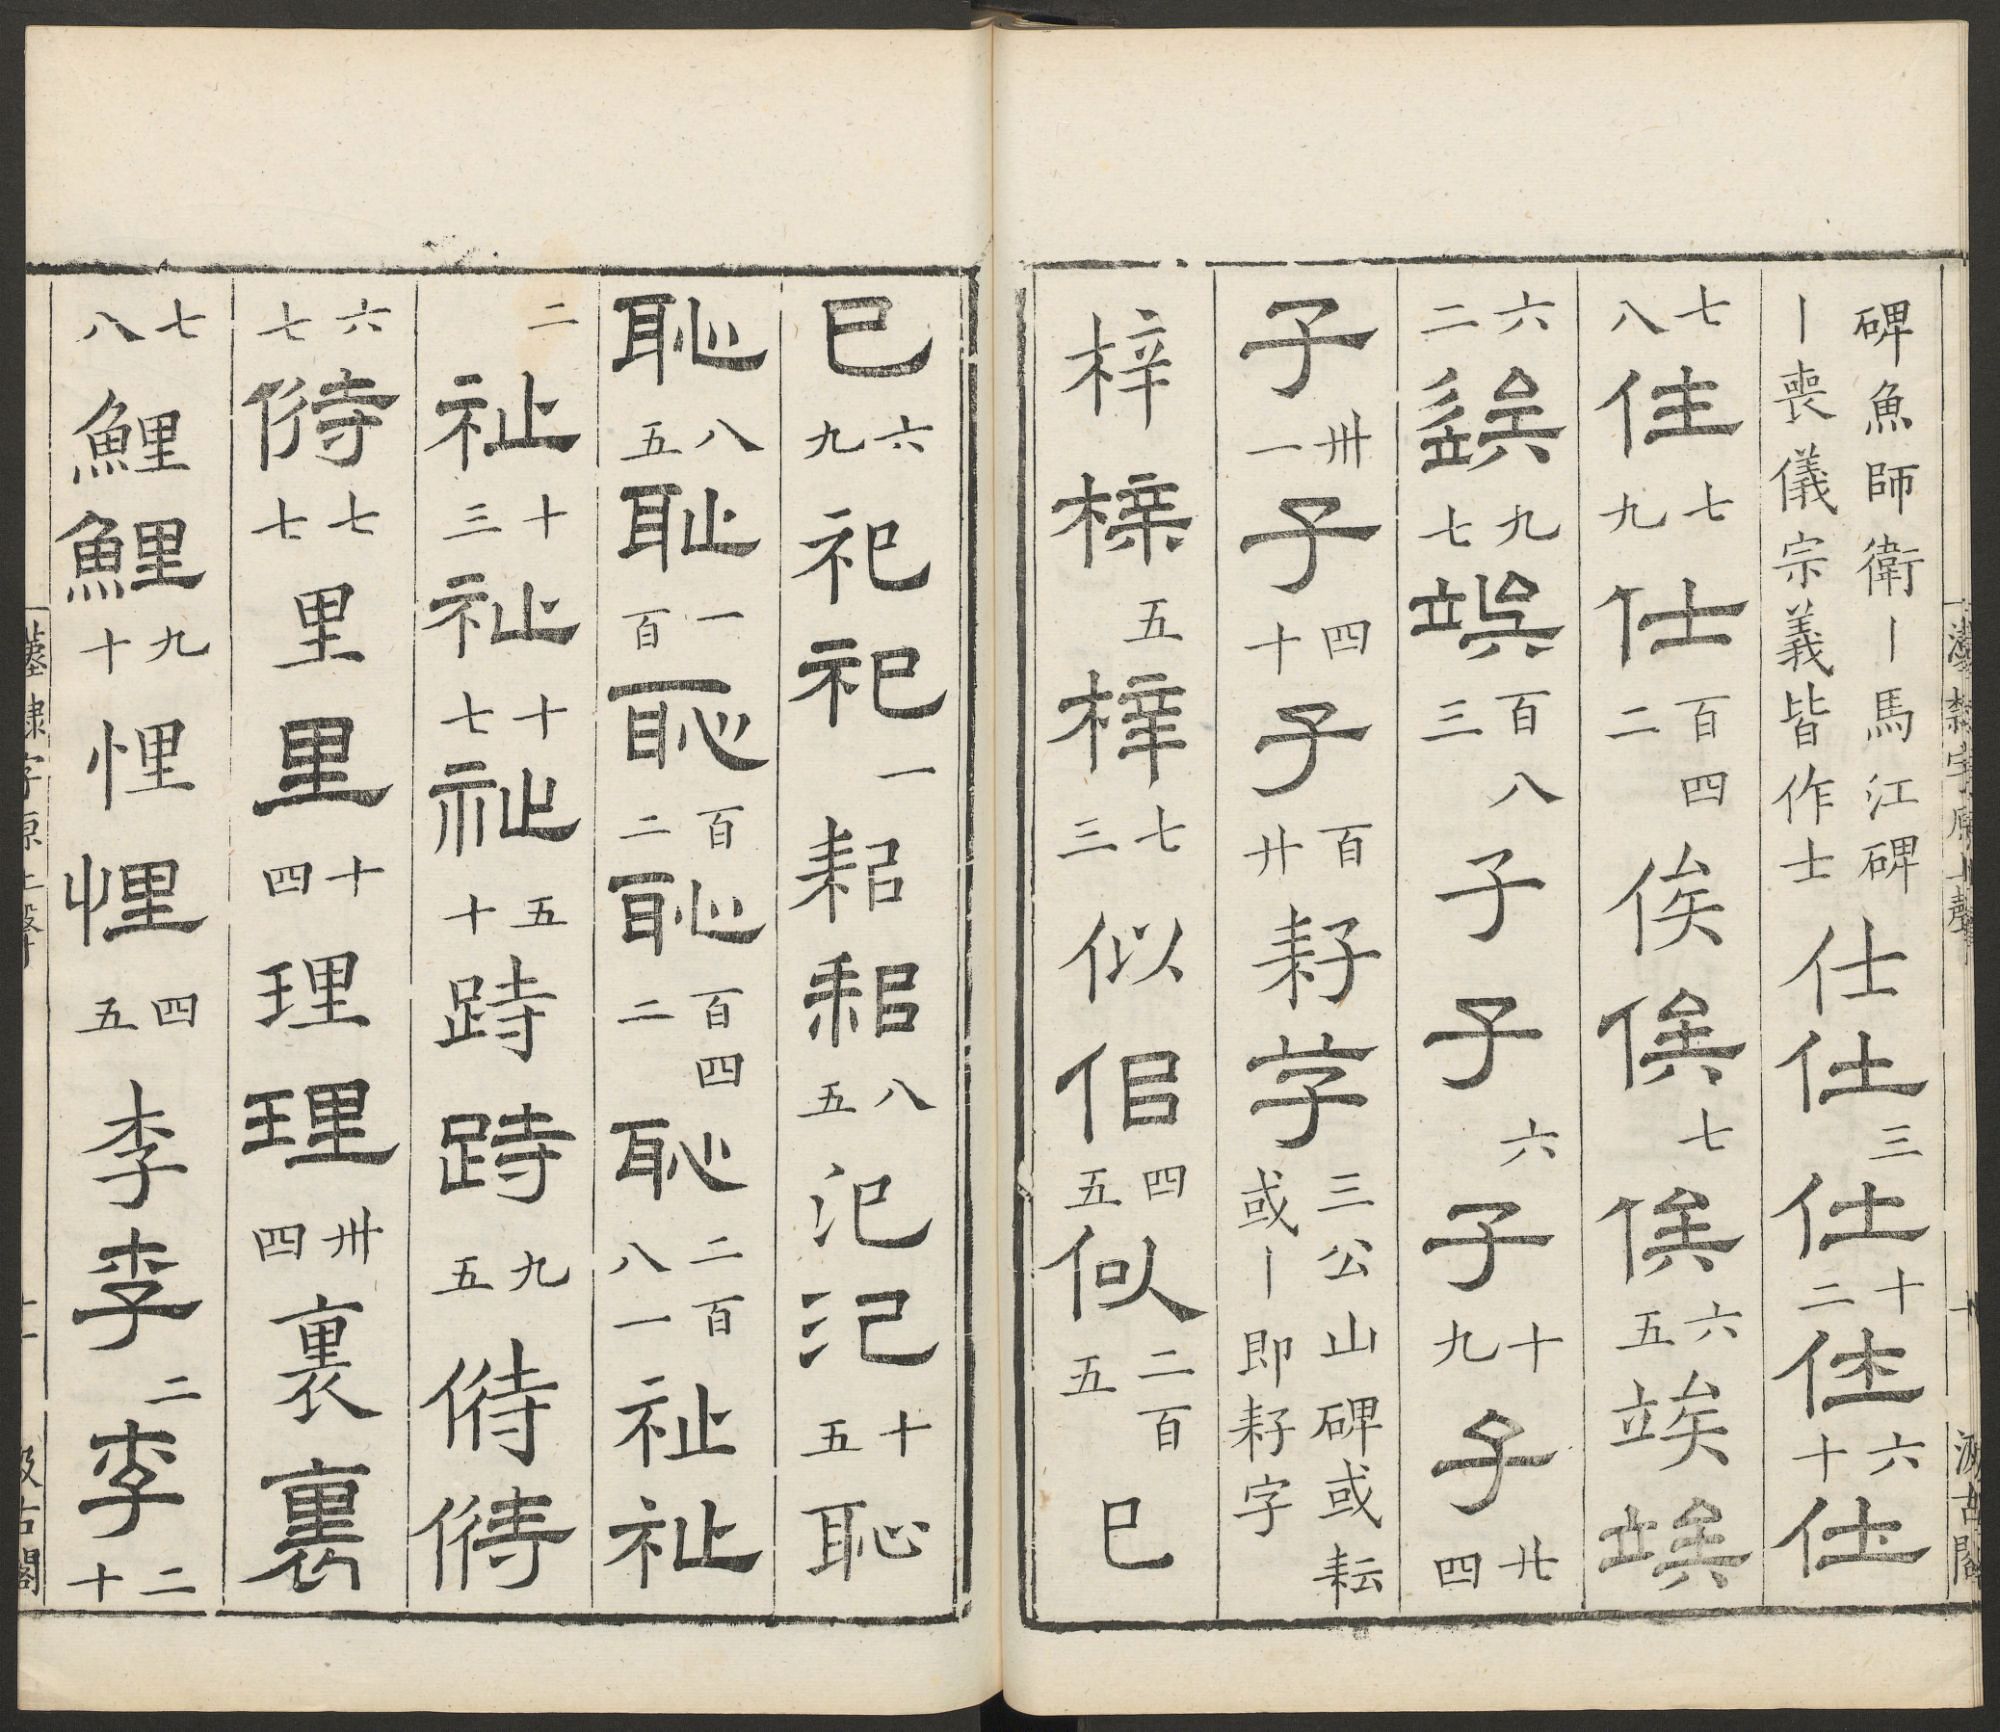 漢隸字原上聲 十 汲古閣
碑魚師衛丨馬江碑丨喪儀宗義皆作士仕仕三仕十二仕六十仕
七八仕七九仕百四二俟俟七俟六五竢竢
六二竢九七竢百八三子子六子十九子廿四
子卅一子四十子百廿耔芓三公山碑或耘或丨即耔字
梓梓五梓七三似佀四五似二百五巳
巳六九祀祀一耜耜八五汜汜十五恥
恥八五耻一百恥百二恥百四二恥二百八一祉祉
二祉十三祉十七祉五十跱跱九五偫偫
六七偫七七里里十四理理卅四裏裏
七八鯉鯉九十悝悝四五李李二李二十
漢隸字原上聲 十一 汲古閣